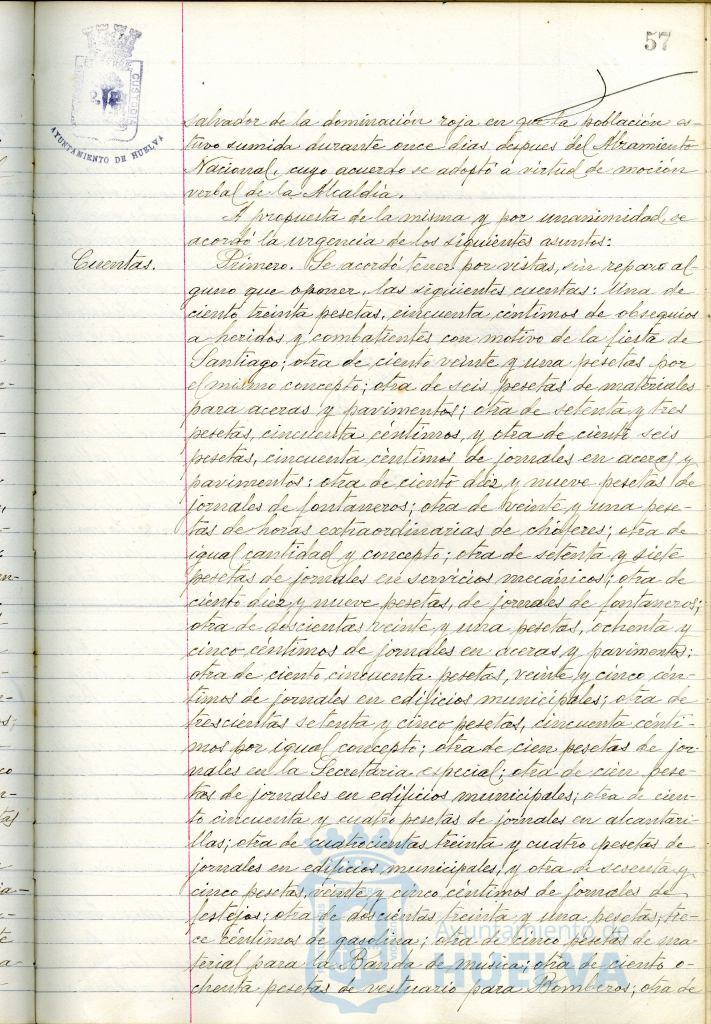 57
AYUNTAMIENTO DE HUELVA
salvador de la dominación roja en que la población es-
tuvo sumida durante once dias despues del Alzamiento
Nacional, cuyo acuerdo se adoptó a virtud de moción
verbal de la Alcaldía.
A propuesta de la misma y por unanimidad, se
acordó la urgencia de los siguientes asuntos:
Cuentas.
Primero. Se acordó tener por vistas, sin reparo al-
guno que oponer, las siguientes cuentas: Una de
ciento treinta pesetas, cincuenta céntimos de obsequios
a heridos y combatientes con motivo de la fiesta de
Santiago; otra de ciento veinte y una pesetas por
el mismo concepto; otra de seis pesetas de materiales
para aceras y pavimentos; otra de setenta y tres
pesetas, cincuenta céntimos, y otra de ciento seis
pesetas, cincuenta céntimos de jornales en aceras y
pavimentos; otra de ciento diez y nueve pesetas de
jornales de fontaneros; otra de veinte y una pese-
tas de horas extraordinarias de chóferes; otra de
igual cantidad y concepto; otra de setenta y siete
pesetas de jornales en servicios mecánicos; otra de
ciento diez y nueve pesetas, de jornales de fontaneros;
otra de doscientas veinte y una pesetas, ochenta y
cinco céntimos de jornales en aceras y pavimentos;
otra de ciento cincuenta pesetas, veinte y cinco cén-
timos de jornales en edificios municipales; otra de
trescientas setenta y cinco pesetas, cincuenta cénti-
mos por igual concepto; otra de cien pesetas de jor-
nales en la Secretaria especial; otra de cien pese-
tas de jornales en edificios municipales; otra de cien-
to cincuenta y cuatro pesetas de jornales en alcantari-
llas; otra de cuatrocientas treinta y cuatro pesetas de
jornales en edificios municipales; y otra de sesenta y
cinco pesetas, veinte y cinco céntimos de jornales de
festejos; otra de doscientas treinta y una pesetas, tre-
ce céntimos de gasolina; otra de cinco pesetas de ma-
terial para la Banda de musica; otra de ciento o-
chenta pesetas de vestuario para Bomberos; otra de
Ayuntamiento de
HUELVA